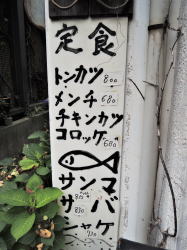 定食
トンカツ 800
メンチ 680
チキンカツ
コロッケ 680
サンマ
サバ
シャケ